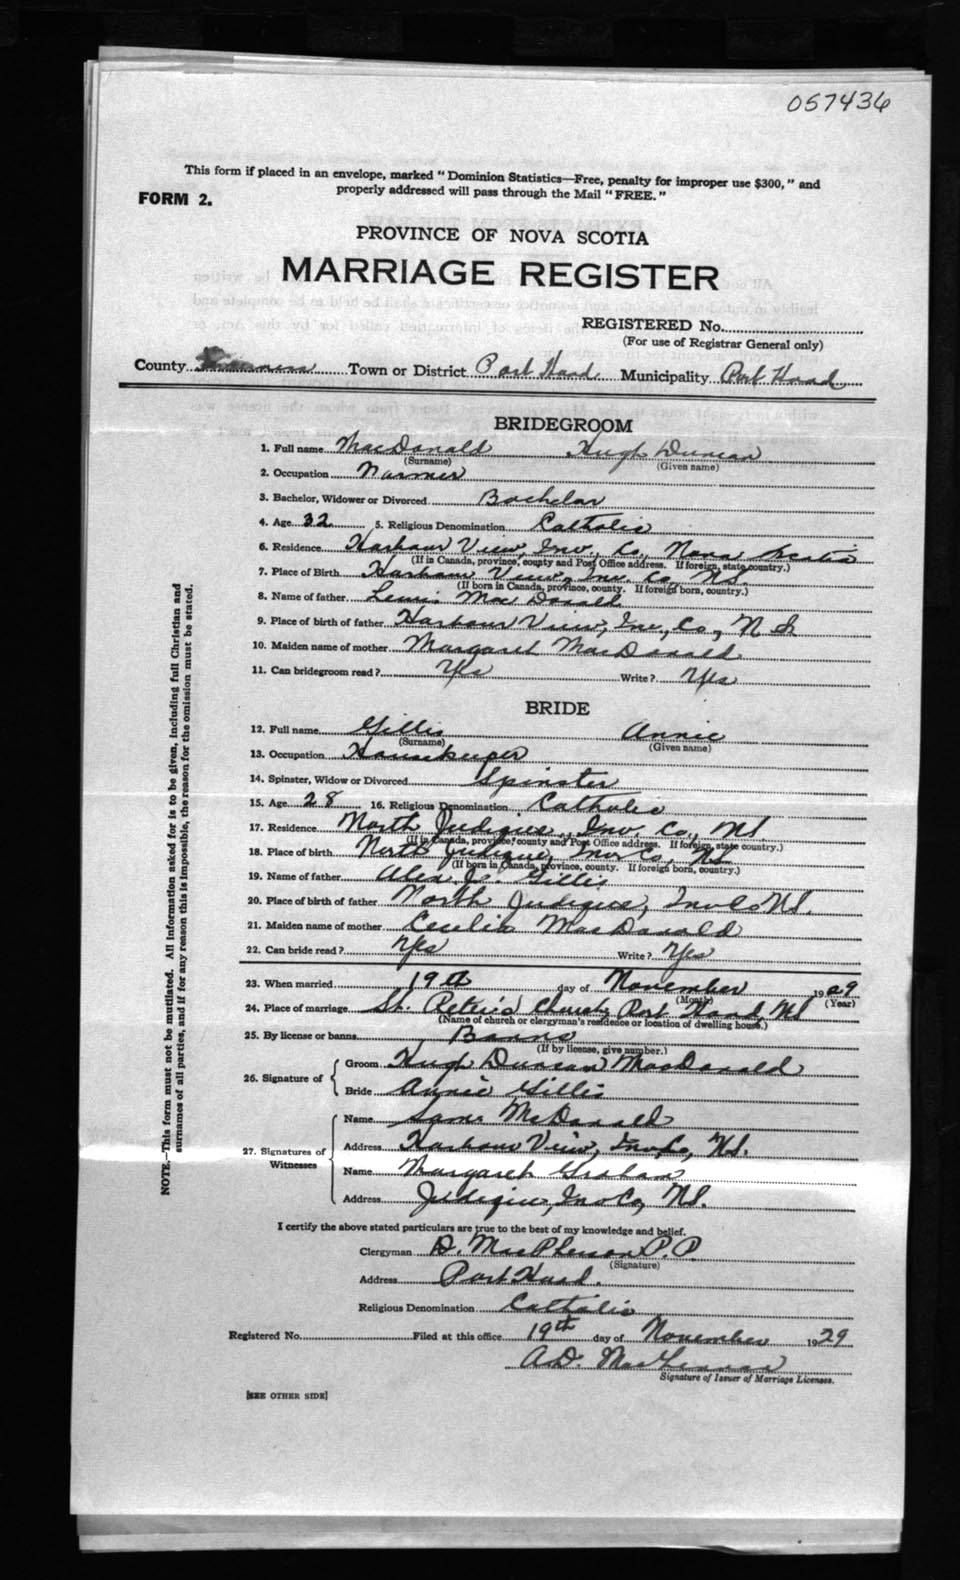 057436
This form if placed in an envelope, marked "Dominion Statistics—Free, penalty for improper use $300," and
properly addressed will pass through the Mail "FREE."
FORM 2.
PROVINCE OF NOVA SCOTIA
MARRIAGE REGISTER
REGISTERED No.
(For use of Registrar General only)
County Inverness Town or District Port Hood Municipality Port Hood
BRIDEGROOM
1. Full name MacDonald Hugh Duncan
(Surname) (Given name)
2. Occupation Farmer
3. Bachelor, Widower or Divorced Bachelor
4. Age 32 5. Religious Denomination Catholic
6. Residence Harbour View, Inv., Co., Nova Scotia
(If in Canada, province, county and Post Office address. If foreign, state country.)
7. Place of Birth Harbour View, Inv. Co, N.S.
(If born in Canada, province, county. If foreign born, country.)
8. Name of father Lewis MacDonald
9. Place of birth of father Harbour View, Inv., Co., N S
10. Maiden name of mother Margaret MacDonald
11. Can bridegroom read? Yes Write? Yes
BRIDE
12. Full name Gillis Annie
(Surname) (Given name)
13. Occupation Housekeeper
14. Spinster, Widow or Divorced Spinster
15. Age 28 16. Religious Denomination Catholic
17. Residence North Judique, Inv. Co., N.S.
(If in Canada, province, county and Post Office address. If foreign, state country.)
18. Place of birth North Judique, Inv Co, N.S.
(If born in Canada, province, county. If foreign born, country.)
19. Name of father Alex Gillis
20. Place of birth of father North Judique, Inv Co N.S.
21. Maiden name of mother Cecilia MacDonald
22. Can bride read? Yes Write? Yes
23. When married 19th day of November 1929
(Month) (Year)
24. Place of marriage St. Peter's Church, Port Hood, N.S
(Name of church or clergyman's residence or location of dwelling house.)
25. By license or banns Banns
(If by license, give number.)
26. Signature of { Groom Hugh Duncan MacDonald
Bride Annie Gillis
27. Signatures of Witnesses { Name McDonald
Address Harbour View, Inv. Co, N.S.
Name Margaret Graham
Address Judique, Inv Co, N.S.
I certify the above stated particulars are true to the best of my knowledge and belief.
Clergyman D. MacPherson P.P
(Signature)
Address Port Hood.
Religious Denomination Catholic
Registered No. Filed at this office 19th day of November 1929
A.D. MacLennan
Signature of Issuer of Marriage Licenses.
[SEE OTHER SIDE]
NOTE.—This form must not be mutilated. All information asked for is to be given, including full Christian and
surnames of all parties, and if for any reason this is impossible, the reason for the omission must be stated.